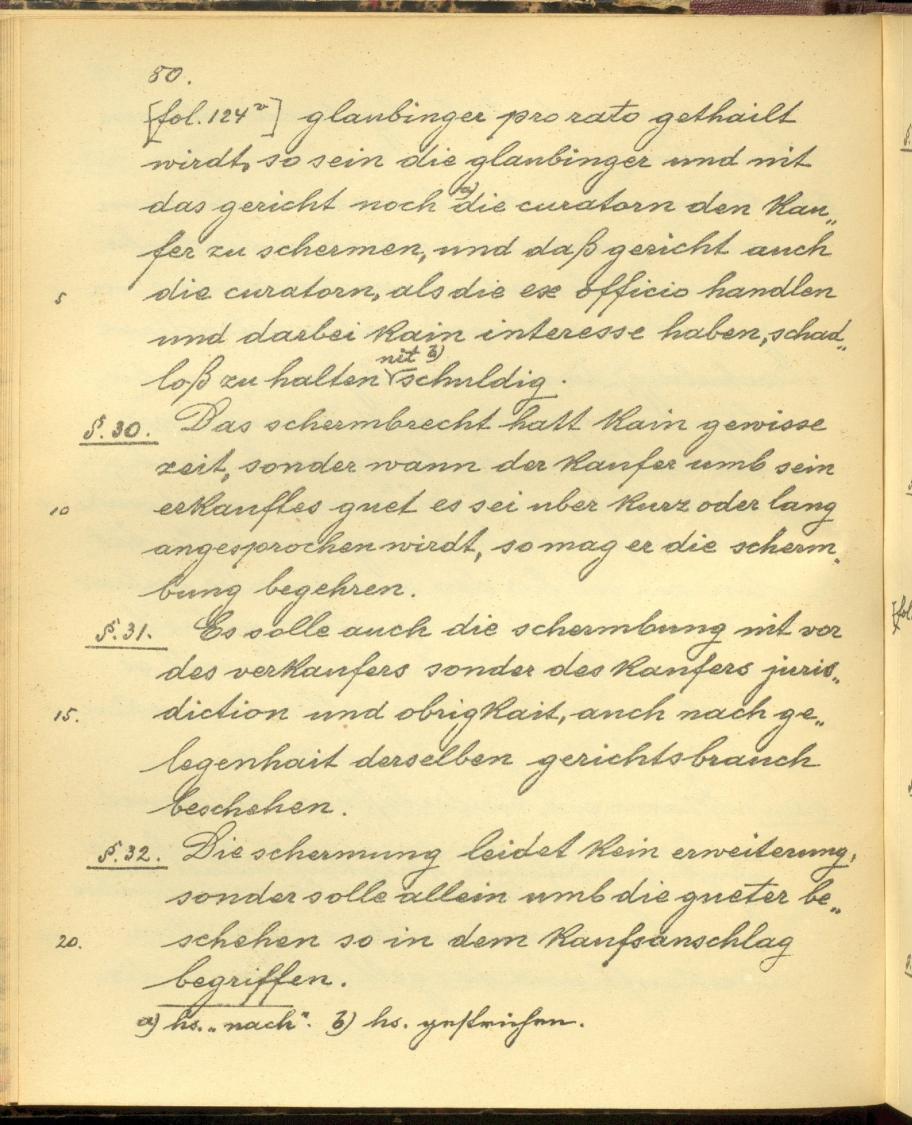 80.
[fol. 124v] glaubinger pro rato gethailt
wirdt, so sein die glaubinger und nit
das gericht noch a) die curatorn den kau„
fer zu schermen, und daß gericht auch
5 die curatorn, als die ex officio handlen
und darbei kain interesse haben, schad„
loß zu halten nit b) schuldig.
§. 30. Das schermbrecht hatt kain gewisse
zeit, sonder wann der kaufer umb sein
10 erkauftes guet es sei uber kurz oder lang
angesprochen wirdt, so mag er die scherm„
bung begehren.
§. 31. Es solle auch die schermbung nit vor
des verkaufers sonder des kaufers juris„
15. diction und obrigkait, auch nach ge„
legenhait derselben gerichtsbrauch
beschehen.
§. 32. Die schermung leidet kein erweiterung,
sonder solle allein umb die gueter be„
20. schehen so in dem kaufsanschlag
begriffen.
a) hs. „nach“. b) hs. gestrichen.